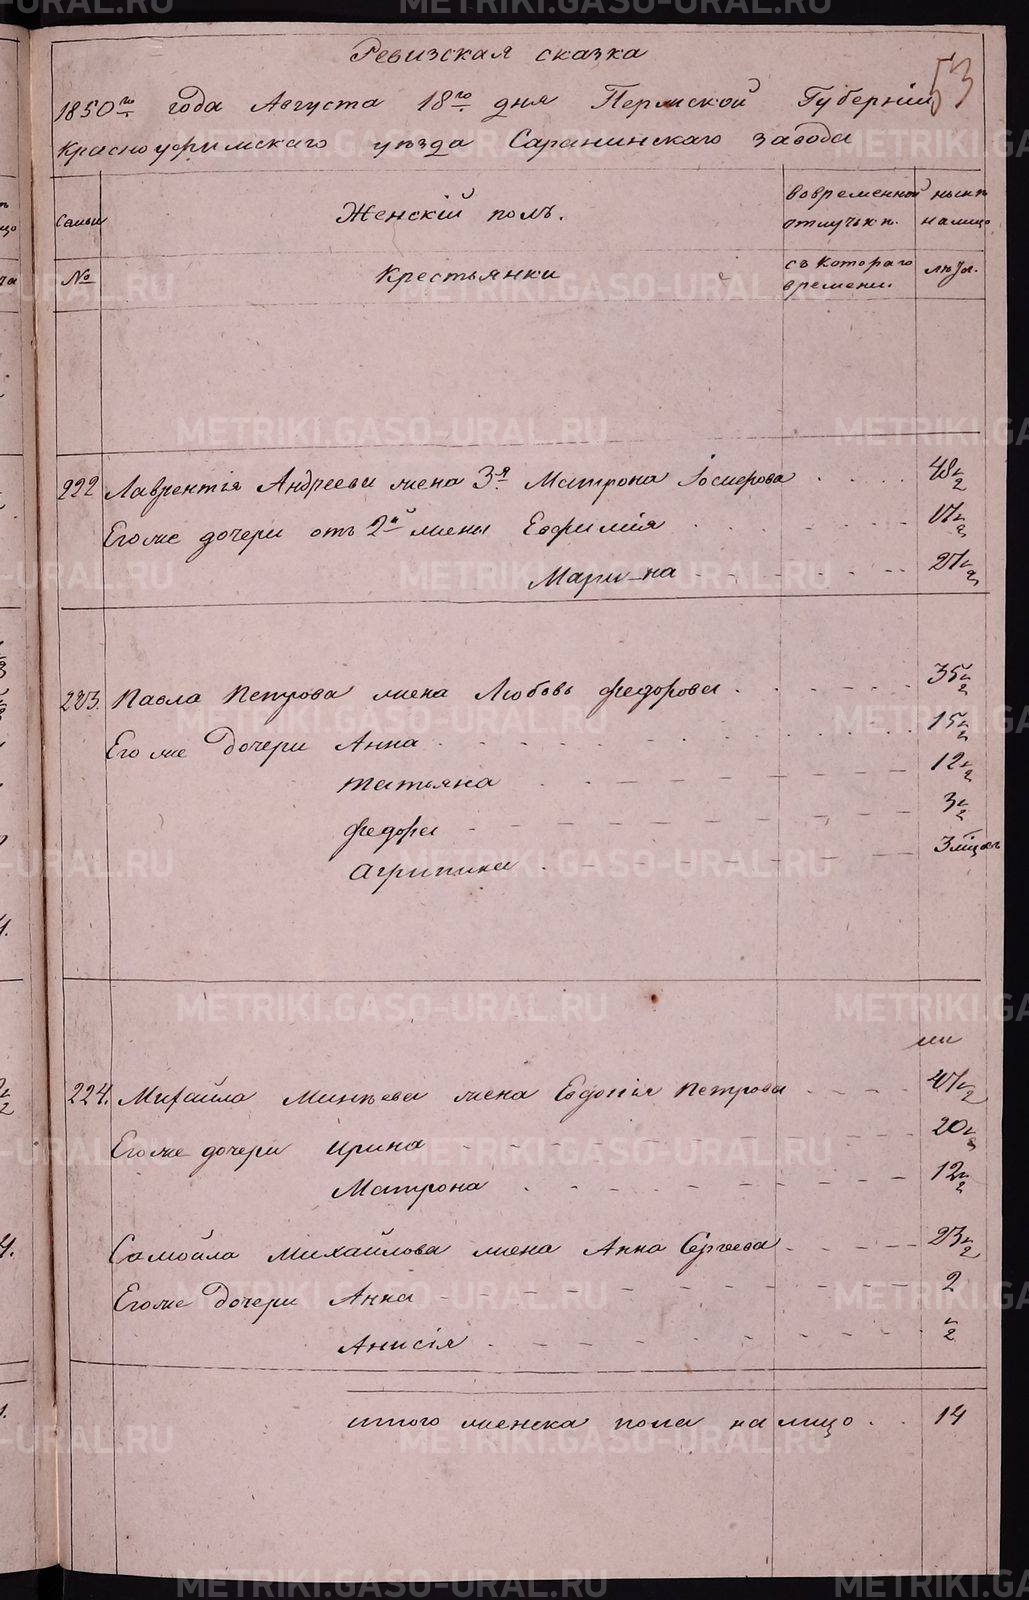 Ревизская сказка
53
1850го года Августа 18го дня Пермской Губернии
Красноуфимскаго уезда Саранинскаго завода
Семьи
Женскій полъ.
вовременной отлучкѣ.
нынѣ налицо
№
Крестьянки
съ котораго времени.
лѣта.
222 Лаврентія Андреева жена 3я Матрона 48½
Егоже дочери отъ 2й жены Евфимія 17½
Марина 27½
223. Павла Петрова жена Любовь Федорова 35½
Егоже дочери Анна 15½
Татьяна 12½
Федора 3½
Агрипина 3 мѣсяц
224. Михайла Минѣева жена Евдокія Петрова 47½
Егоже дочери Ирина 20½
Матрона 12½
Самойла Михайлова жена Анна Сергеева 23½
Егоже дочери Анна 2
Анисія ½
итого женска пола налицо 14
METRIKI.GASO-URAL.RU